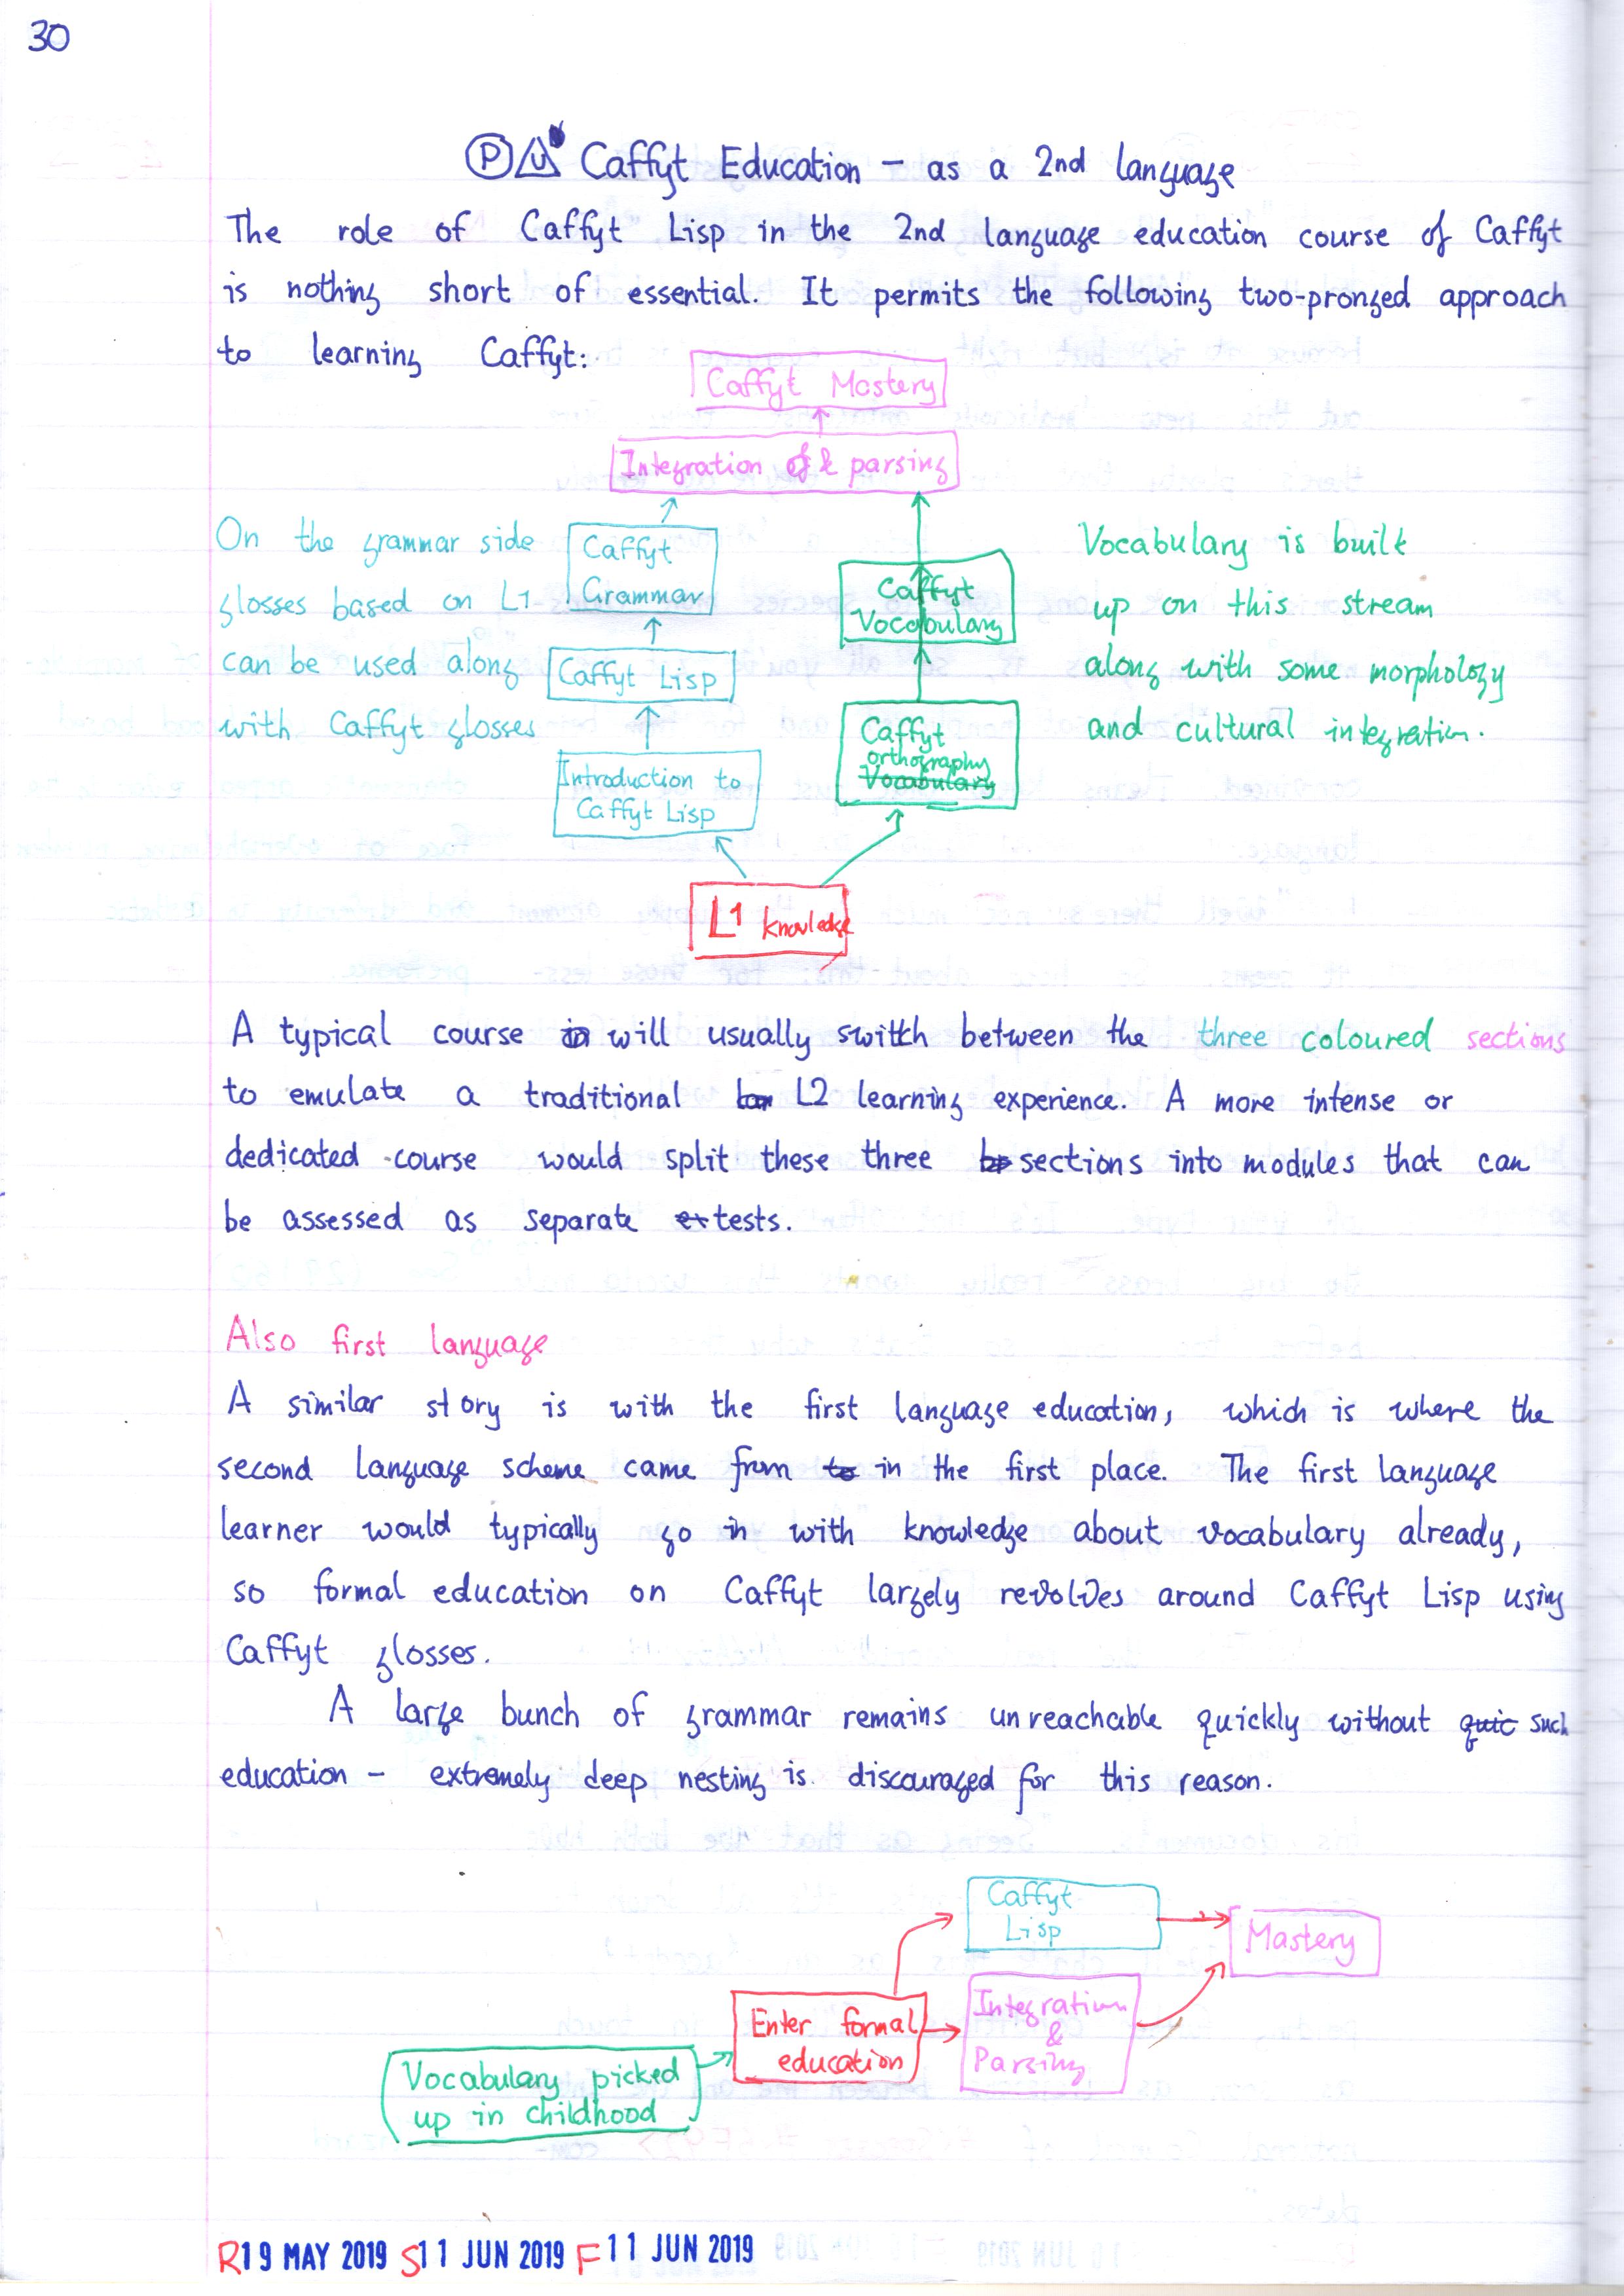 30
Ⓟ U Caffyt Education – as a 2nd language
The role of Caffyt Lisp in the 2nd language education course of Caffyt
is nothing short of essential. It permits the following two-pronged approach
to learning Caffyt:
Caffyt Mastery
Integration & parsing
On the grammar side
glosses based on L1
can be used along
with Caffyt glosses
Caffyt
Grammar
Caffyt Lisp
Introduction to
Caffyt Lisp
Caffyt
Vocabulary
Caffyt
orthography
Vocabulary
Vocabulary is built
up on this stream
along with some morphology
and cultural integration.
L1 knowledge
A typical course will usually switch between the three coloured sections
to emulate a traditional L2 learning experience. A more intense or
dedicated course would split these three sections into modules that can
be assessed as separate tests.
Also first language
A similar story is with the first language education, which is where the
second language scheme came from to in the first place. The first language
learner would typically go in with knowledge about vocabulary already,
so formal education on Caffyt largely revolves around Caffyt Lisp using
Caffyt glosses.
A large bunch of grammar remains unreachable quickly without quic such
education – extremely deep nesting is discouraged for this reason.
Caffyt
Lisp
Mastery
Enter formal
education
Integration
&
Parsing
Vocabulary picked
up in childhood
R 19 MAY 2019 S 11 JUN 2019 F 11 JUN 2019